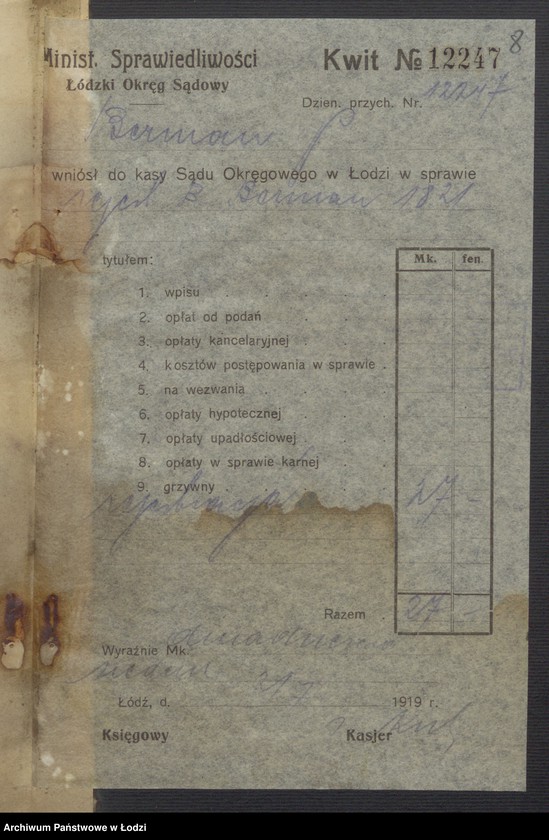 8
Minist. Sprawiedliwości
Łódzki Okręg Sądowy
Kwit № 12247
Dzien. przych. Nr. 12247
Berman P.
wniósł do kasy Sądu Okręgowego w Łodzi w sprawie
rejest B Berman 1821
tytułem:
Mk. fen.
1. wpisu
2. opłat od podań
3. opłaty kancelaryjnej
4. kosztów postępowania w sprawie
5. na wezwania
6. opłaty hypotecznej
7. opłaty upadłościowej
8. opłaty w sprawie karnej
9. grzywny
rejestracja 27 -
Razem 27 -
Wyraźnie Mk. dwadzieścia
siedem
Łódź, d. 1919 r.
Księgowy Kasjer
Archiwum Państwowe w Łodzi